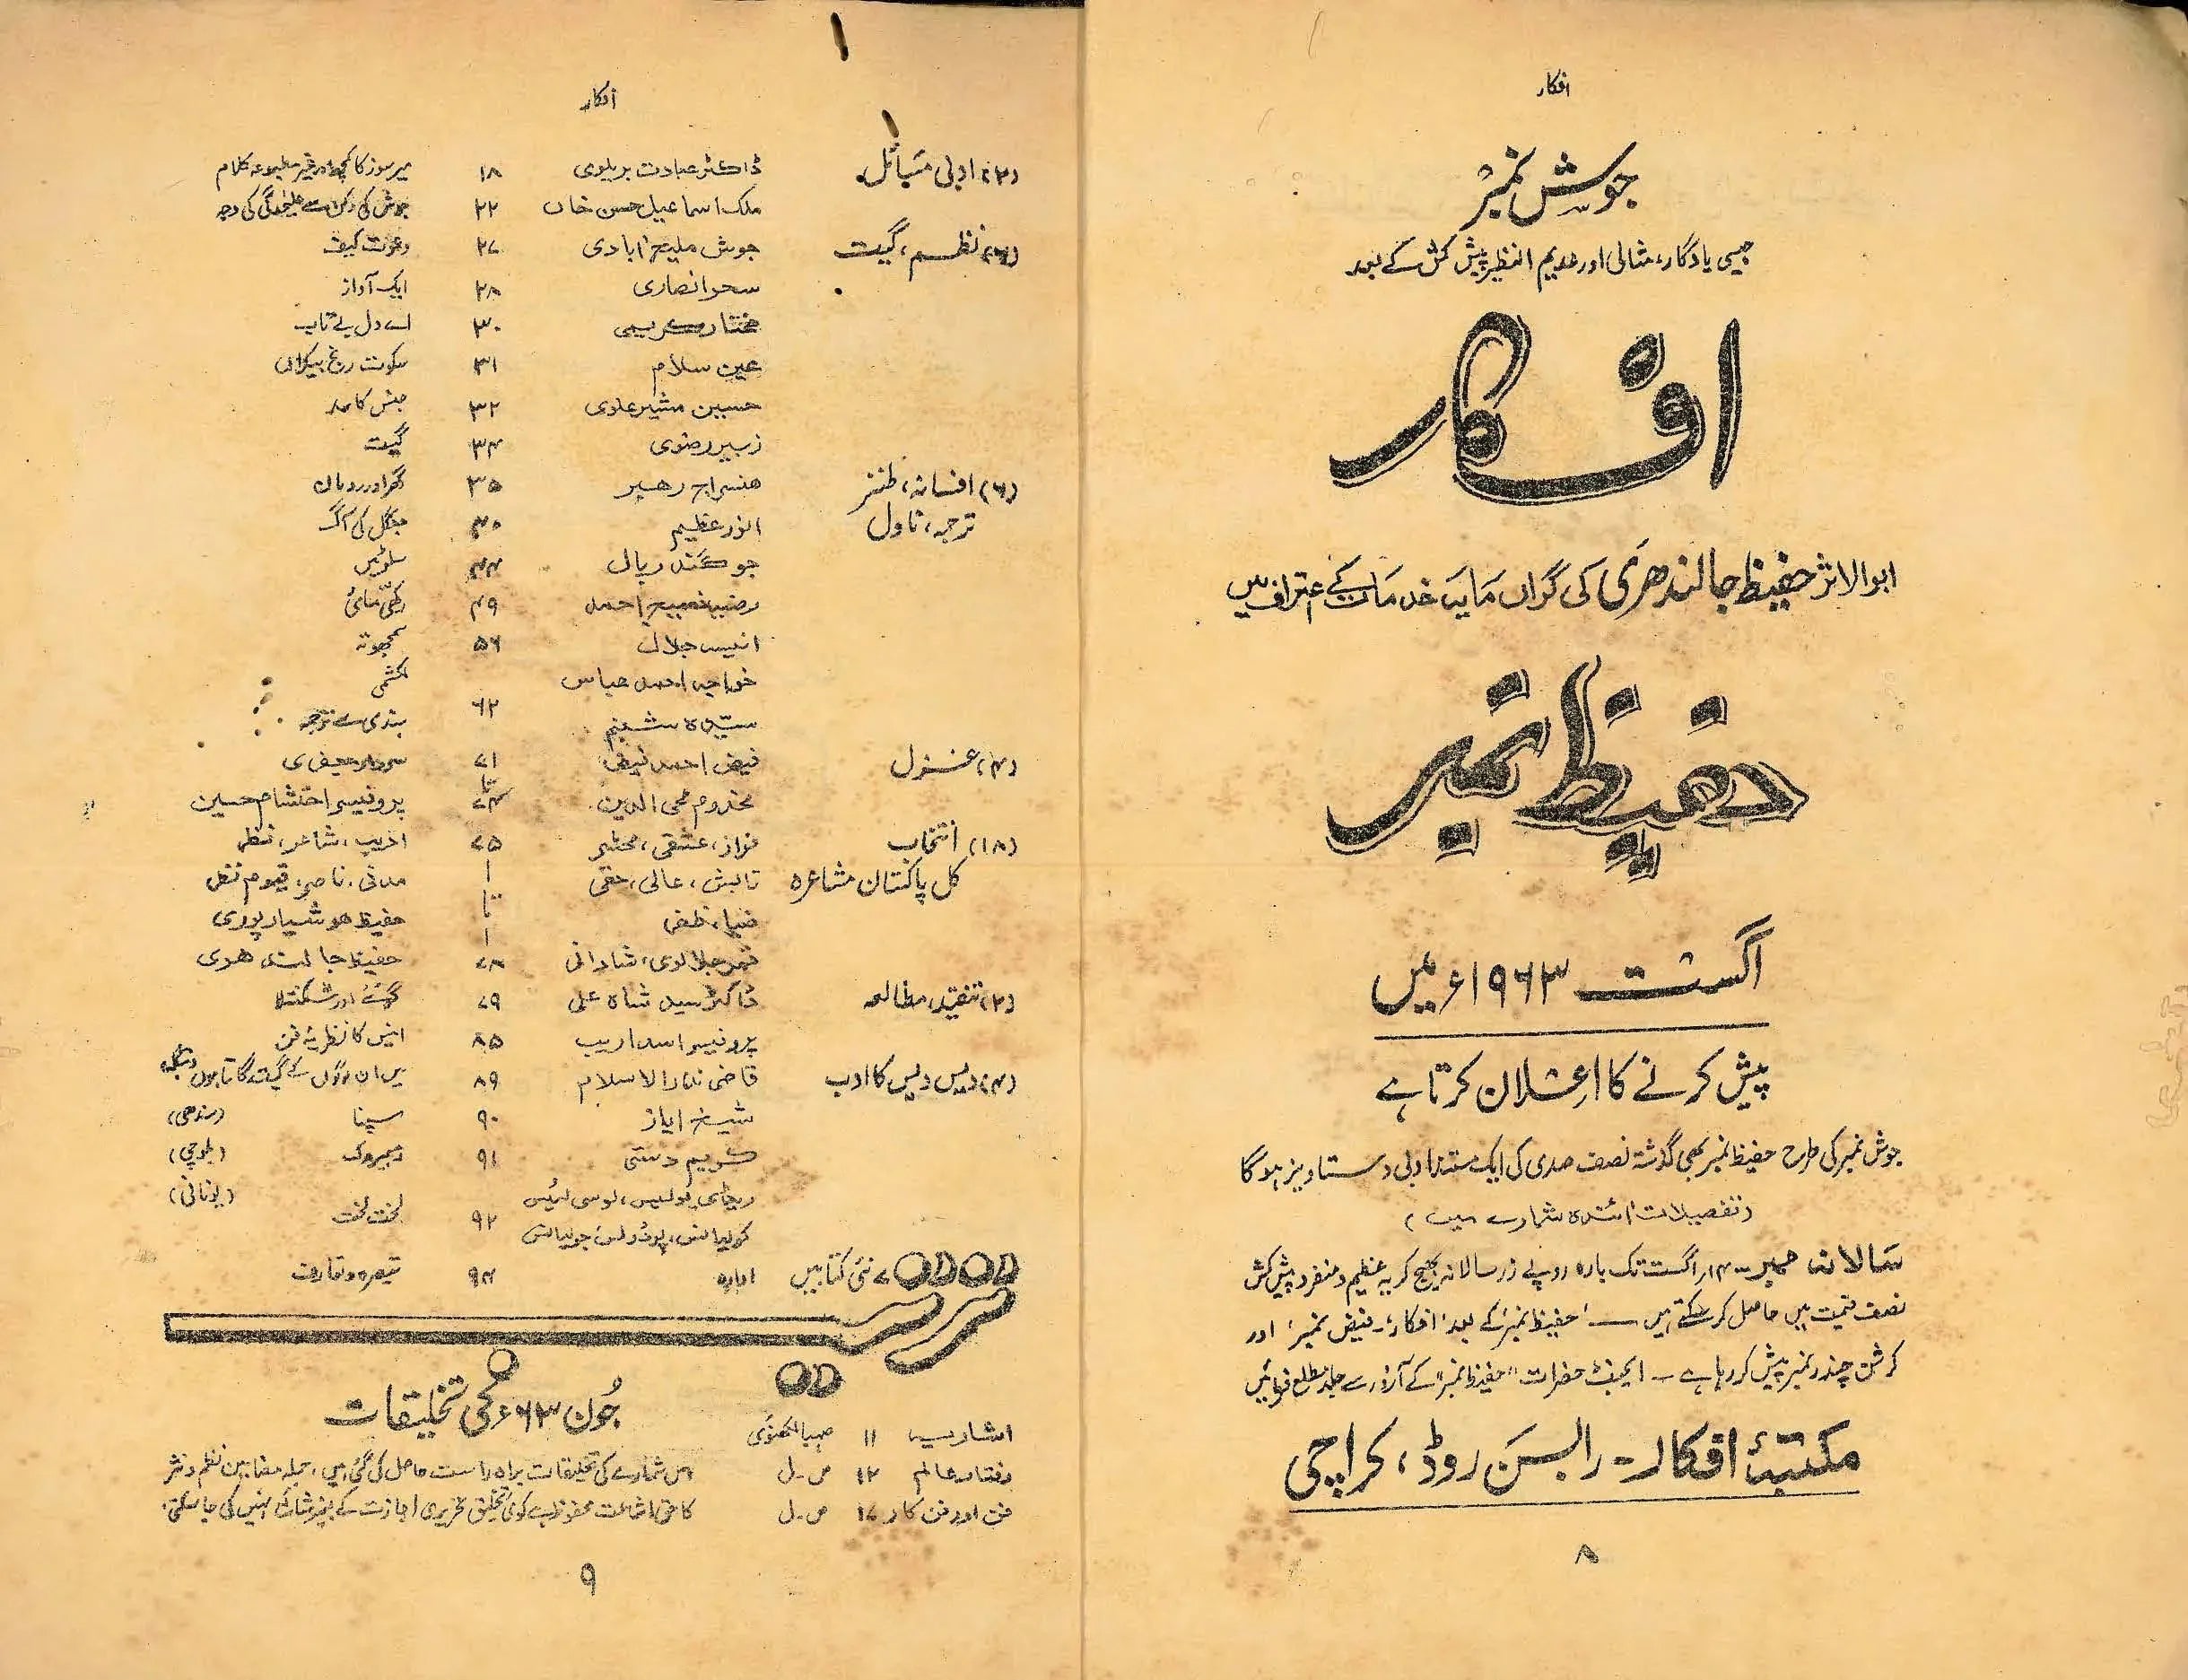 افکار
جوش نمبر
جیسی یادگار، مثالی اور عدیم النظیر پیش کش کے بعد
افکار
ابوالاثر حفیظ جالندھری کی گراں مایہ خدمات کے اعتراف میں
حفیظ نمبر
اگست ۱۹۶۳ء میں
پیش کرنے کا اعلان کرتا ہے
جوش نمبر کی طرح حفیظ نمبر بھی گذشتہ نصف صدی کی ایک مستند ادبی دستاویز ہوگا
(تفصیلات آئندہ شمارے میں)
سالانہ ممبر ۔۔ ۱۴ اگست تک بارہ روپے زر سالانہ بھیج کر یہ عظیم و منفرد پیش کش
نصف قیمت میں حاصل کرسکتے ہیں ــــ 'حفیظ نمبر' کے بعد 'افکار' ۔ فیض نمبر' اور
کرشن چندر نمبر پیش کر رہا ہے ۔ ایجنٹ حضرات "حفیظ نمبر" کے آرڈر سے جلد مطلع فرمائیں
مکتبۂ افکار ۔ رابسن روڈ، کراچی
۸
افکار
(۲) ادبی مسائل ڈاکٹر عبادت بریلوی ۱۸ میر سوز کا کچھ اور غیر مطبوعہ کلام
ملک اسماعیل حسن خاں ۲۲ جوش کی دکن سے علیحدگی کی وجہ
(۶) نظم، گیت جوش ملیح آبادی ۲۷ دعوت کیف
سحر انصاری ۲۸ ایک آواز
مختار کریمی ۳۰ اے دل بے تاب
عین سلام ۳۱ سکوت رنج بیکراں
حسین مشیر علوی ۳۲ جشن کامد
زبیر رضوی ۳۴ گیت
(۶) افسانہ، طنز ھنسراج رھبر ۳۵ گھر اور رومان
ترجمہ، ناول انور عظیم ۴۰ جنگل کی آگ
جوگندر پال ۴۴ سلوٹیں
رضیہ فصیح احمد ۴۹ رکھی مائی
انیس جلال ۵۶ سمجھوتہ
خواجہ احمد عباس لکشمی
۶۲
سیدہ شبنم ہندی سے ترجمہ
(۴) غزل فیض احمد فیض ۷۱ سردار جعفری
تا
مخدوم محی الدین ۷۴ پروفیسر احتشام حسین
(۱۸) انتخاب فراز، عشقی، محشر ۷۵ ادیب، شاعر، نظر
کل پاکستان مشاعرہ تابش، عالی، حقی مدنی، ناصر، قیوم نظر
ضیا، ظفر تا حفیظ ھوشیارپوری
قمر جلالوی، شادانی ۷۸ حفیظ جالندھری
(۲) تنقید، مطالعہ ڈاکٹر سید شاہ علی ۷۹ گوئٹے اور شکنتلا
پروفیسر اسد اریب ۸۵ انیس کا نظریۂ فن
(۴) دیس دیس کا ادب قاضی نذرالاسلام ۸۹ میں ان لوگوں کے گیت گاتا ہوں (بنگلہ)
شیخ ایاز ۹۰ سپنا (سندھی)
کریم دشتی ۹۱ (بلوچی)
۹۲ لخت لخت (یونانی)
نئی کتابیں ادارہ ۹۴ تبصرہ و تعارف
جون ۶۳ء کی تخلیقات
اشاریہ ۱۱ صہبا لکھنوی
رفتار عالم ۱۲ ص۔ل
فن اور فن کار ۱۷ ص۔ل
اس شمارے کی تخلیقات براہ راست حاصل کی گئی ہیں، جملہ مضامین نظم و نثر
کا حق اشاعت محفوظ ہے کوئی تخلیق تحریری اجازت کے بغیر شائع نہیں کی جا سکتی۔
۹